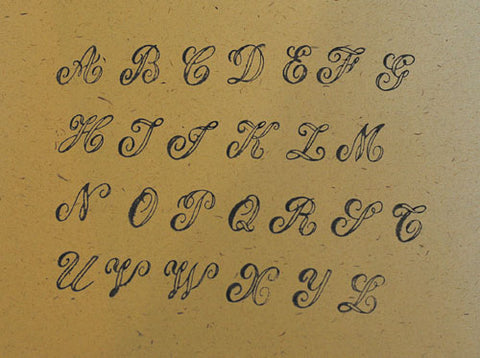 A B C D E F G
H I J K L M
N O P Q R S T
U V W X Y Z